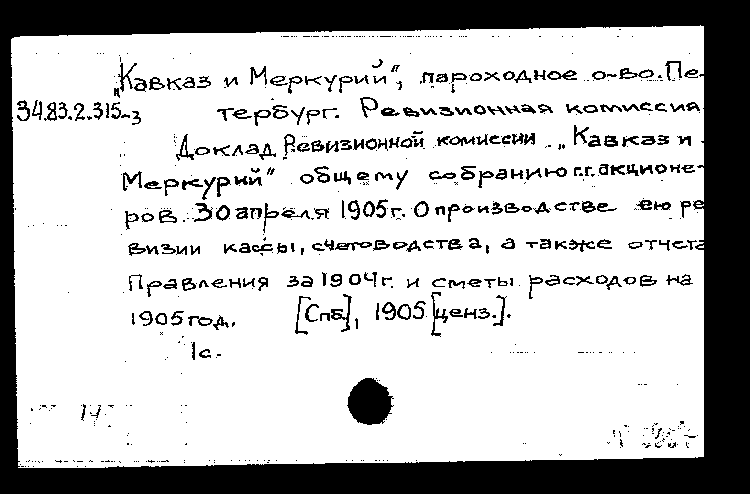 „Кавказ и Меркурий", пароходное о-во. Пе-
34.83.2.315-3 тербург. Ревизионная комиссия
Доклад Ревизионной комиссии „Кавказ и
Меркурий" общему собранию г.г. акционе-
ров. 30 апреля 1905 г. О производстве ею ре
визии кассы, счетоводства, а также отчета
Правления за 1904 г. и сметы расходов на
1905 год. [Спб.], 1905 [ценз.].
1 с.
14